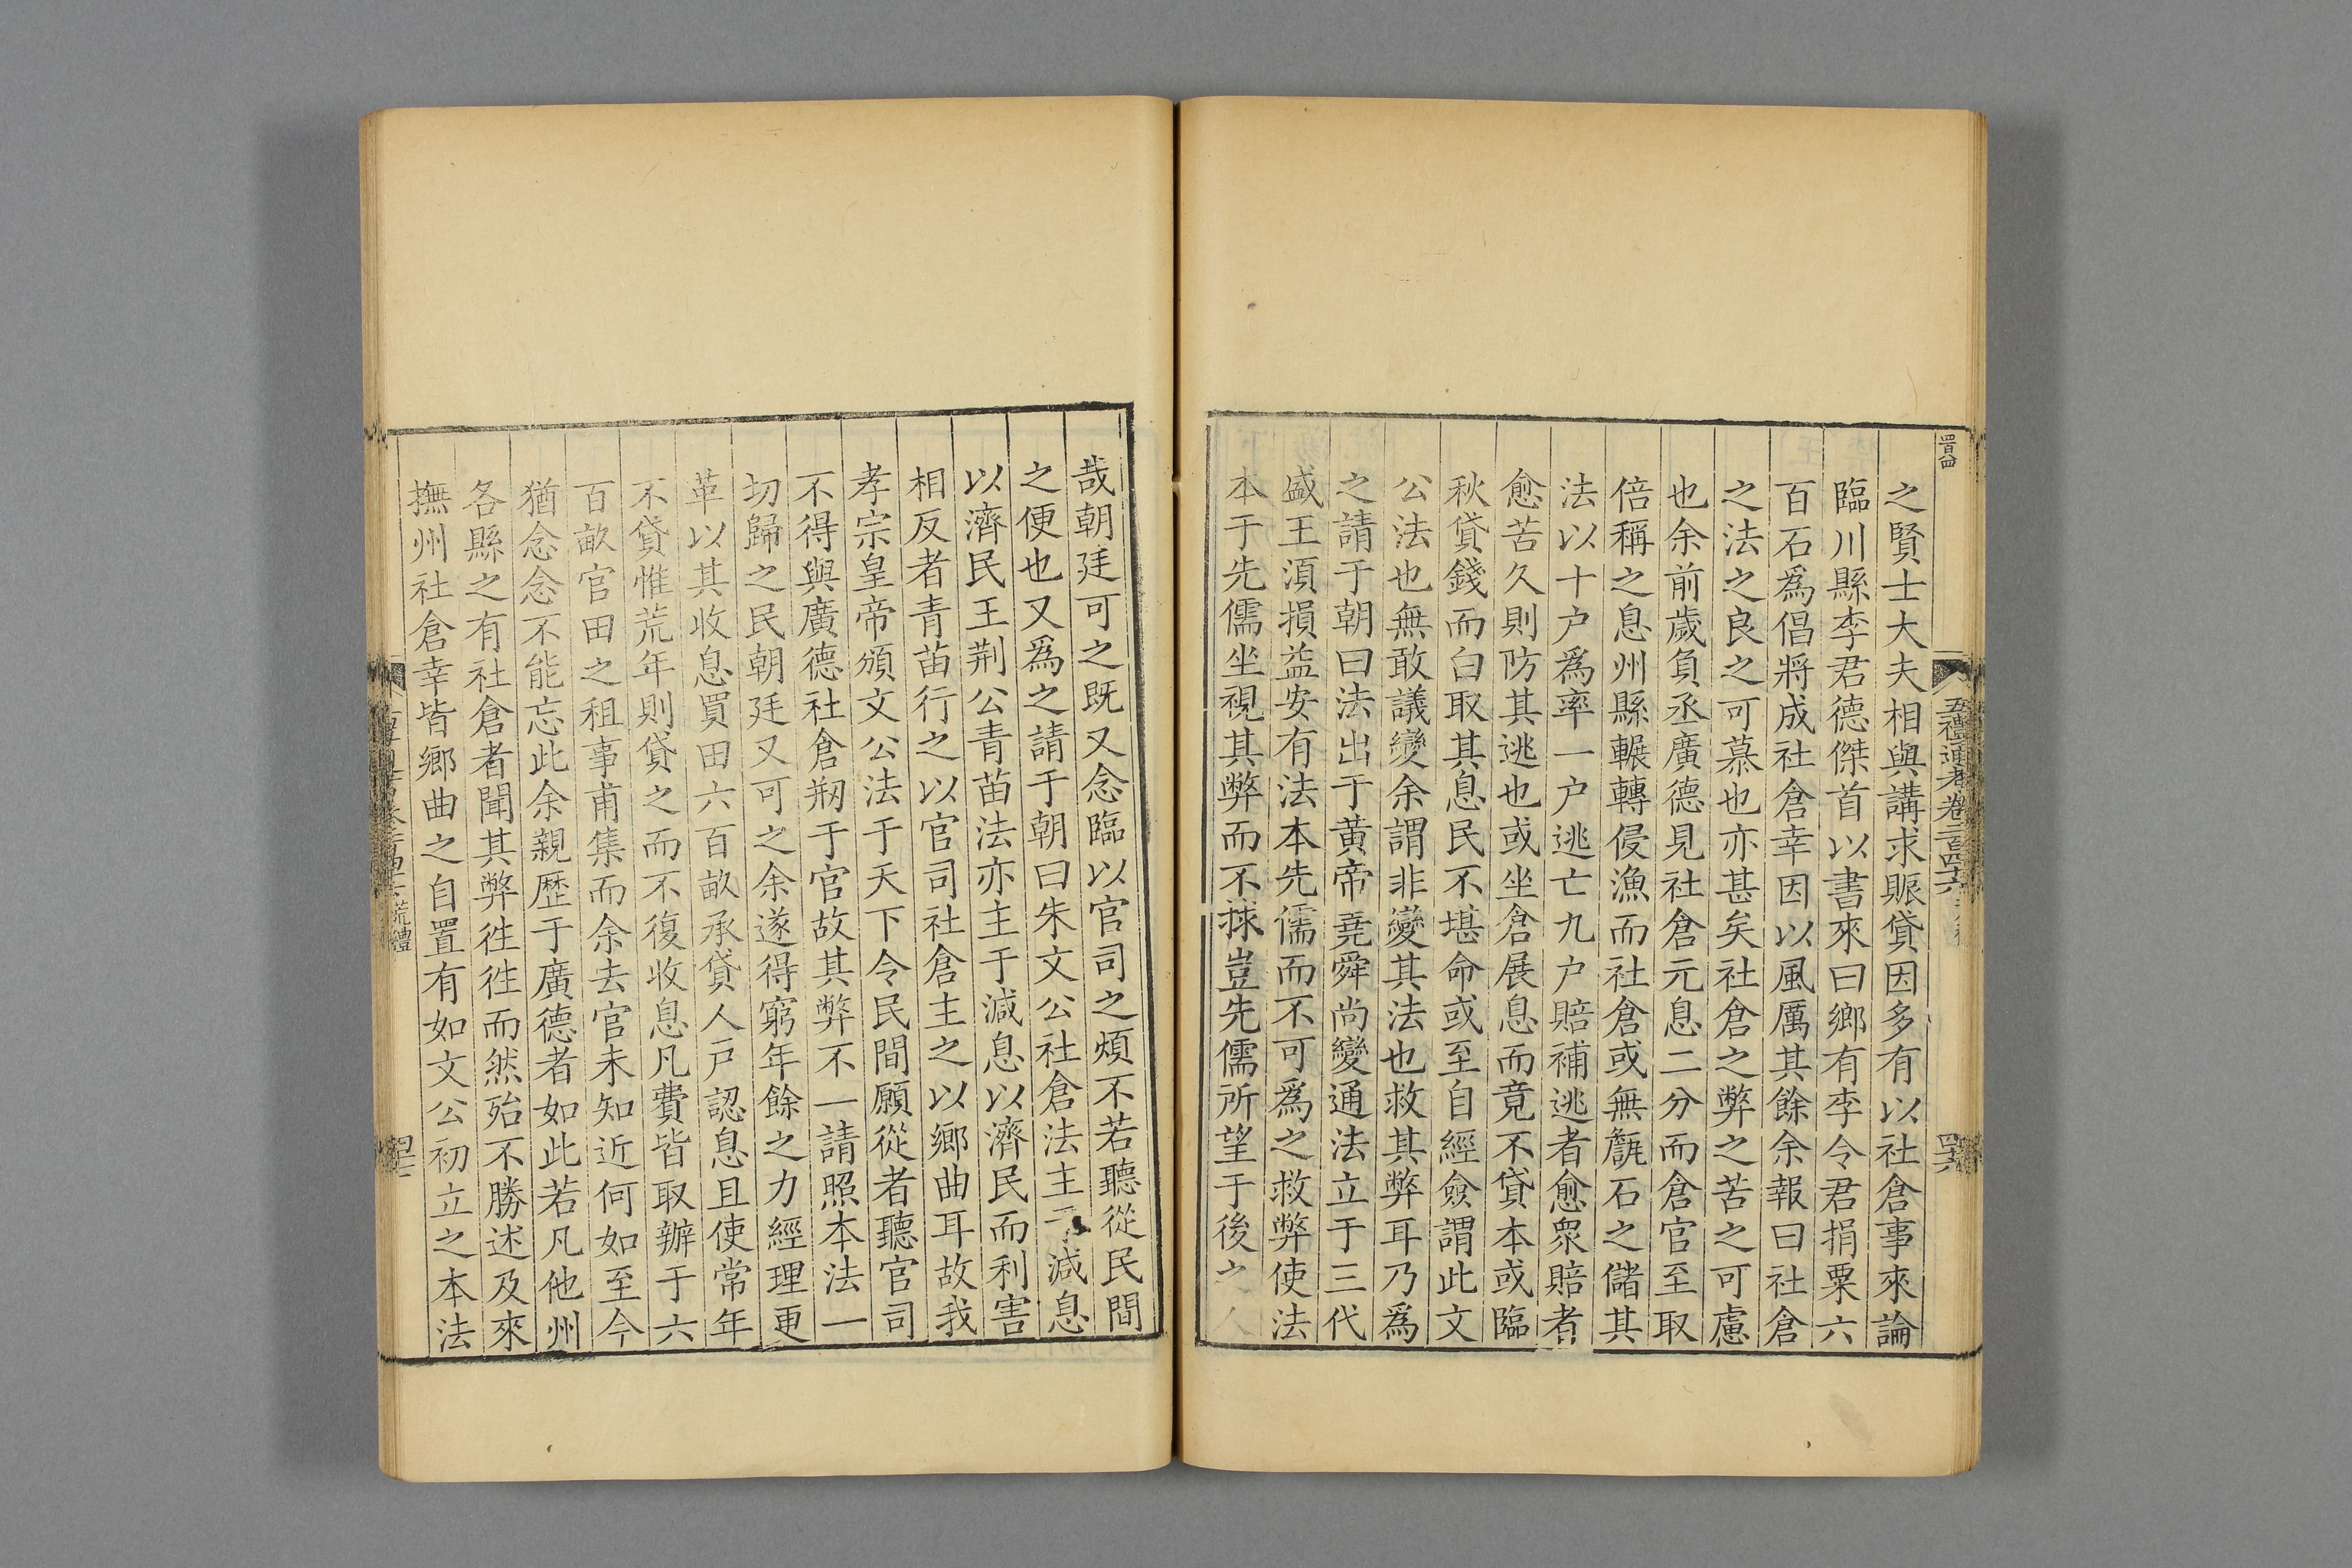 五禮通考卷二百四十六
四十六
之賢士大夫相與講求賑貸因多有以社倉事來論
臨川縣李君德傑首以書來曰鄉有李令君捐粟六
百石爲倡將成社倉幸因以風厲其餘余報曰社倉
之法之良之可慕也亦甚矣社倉之弊之苦之可慮
也余前歲負丞廣德見社倉元息二分而倉官至取
倍稱之息州縣輾轉侵漁而社倉或無甔石之儲其
法以十户爲率一户逃亡九户賠補逃者愈衆賠者
愈苦久則防其逃也或坐倉展息而竟不貸本或臨
秋貸錢而白取其息民不堪命或至自經僉謂此文
公法也無敢議變余謂非變其法也救其弊耳乃爲
之請于朝曰法出于黄帝堯舜尚變通法立于三代
盛王湏損益安有法本先儒而不可爲之救弊使法
本于先儒坐視其弊而不捄豈先儒所望于後之人
哉朝廷可之既又念臨以官司之煩不若聽從民間
之便也又爲之請于朝曰朱文公社倉法主于減息
以濟民王荆公青苗法亦主于減息以濟民而利害
相反者青苗行之以官司社倉主之以鄉曲耳故我
孝宗皇帝頒文公法于天下令民間願從者聽官司
不得與廣德社倉刱于官故其弊不一請照本法一
切歸之民朝廷又可之余遂得窮年餘之力經理更
革以其收息買田六百畝承貸人戸認息且使常年
不貸惟荒年則貸之而不復收息凡費皆取辦于六
百畝官田之租事甫集而余去官未知近何如至今
猶念念不能忘此余親歴于廣德者如此若凡他州
各縣之有社倉者聞其弊徃徃而然殆不勝述及來
撫州社倉幸皆鄉曲之自置有如文公初立之本法